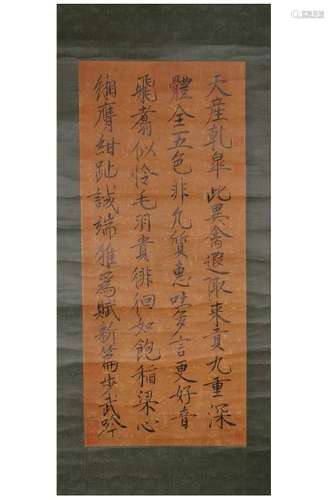 天產乹皐此異禽遐陬來貢九重深
體全五色非凡質惠吐多言更好音
飛翥似怜毛羽貴徘徊如飽稻粱心
緗膺紺趾誠端雅爲賦新篇步武吟